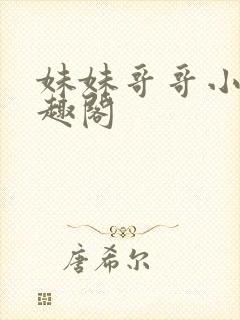 妹妹哥哥小
趣阁
唐希尔